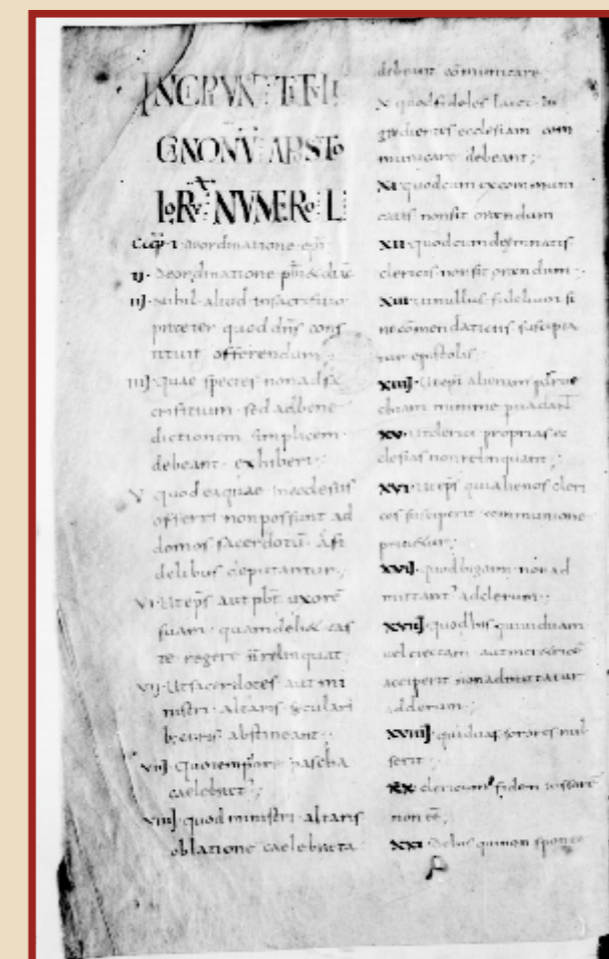 INCIPIUNT TITULI
CANONV̄ APOSTO
LORV̄ NVMERO L
Cap I De ordinatione epi
II De ordinatione pbri & diac
III Nihil aliud in sacrificio
praeter quod dns cons
tituit offerendum
IIII Quae species non ad sa
crificium sed ad bene
dictionem simplicem
debeant exhiberi
V quod ea quae in eclesiis
offerri non possunt ad
domos sacerdotū a fi
delibus deputantur
VI Ut eps aut pbr uxorē
suam quam debet cas
te regere n̄ relinquat
VII Ut sacerdotes aut mi
nistri altaris seculari
bus curis abstineant
VIII Quo tempore pascha
caelebretur
VIIII quod ministri altaris
oblatione caelebrata
debeant cōmunicare
X quod fideles laici in
gredientes ecclesiam com
municare debeant
XI quod cum excommuni
catis non sit orandum
XII quod cum damnatis
clericis non sit orandum
XIII ut nullus fidelium si
ne cōmendaticiis suscipia
tur epistolis
XIIII Ut epi alienam parrue
chiam minime
XV Ut clerici proprias ec
clesias non relinquant
XVI Ut epi qui alienos cleri
cos susciperit communione
priuetur
XVII quod bigami non ad
mittant ad clerum
XVIII quod his qui uiduam
uel eiectam aut meretricē
acciperit non admittatur
ad clerum
XVIIII qui duas sorores nub
serit
XX clericum fidem iussorē
non eē
XXI De his qui non sponte